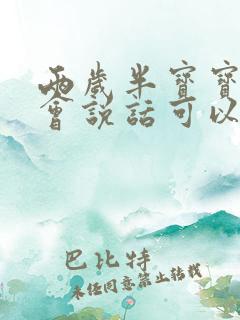 兩歲半寶寶
會説話可以
巴比特
未經同意禁止轉載